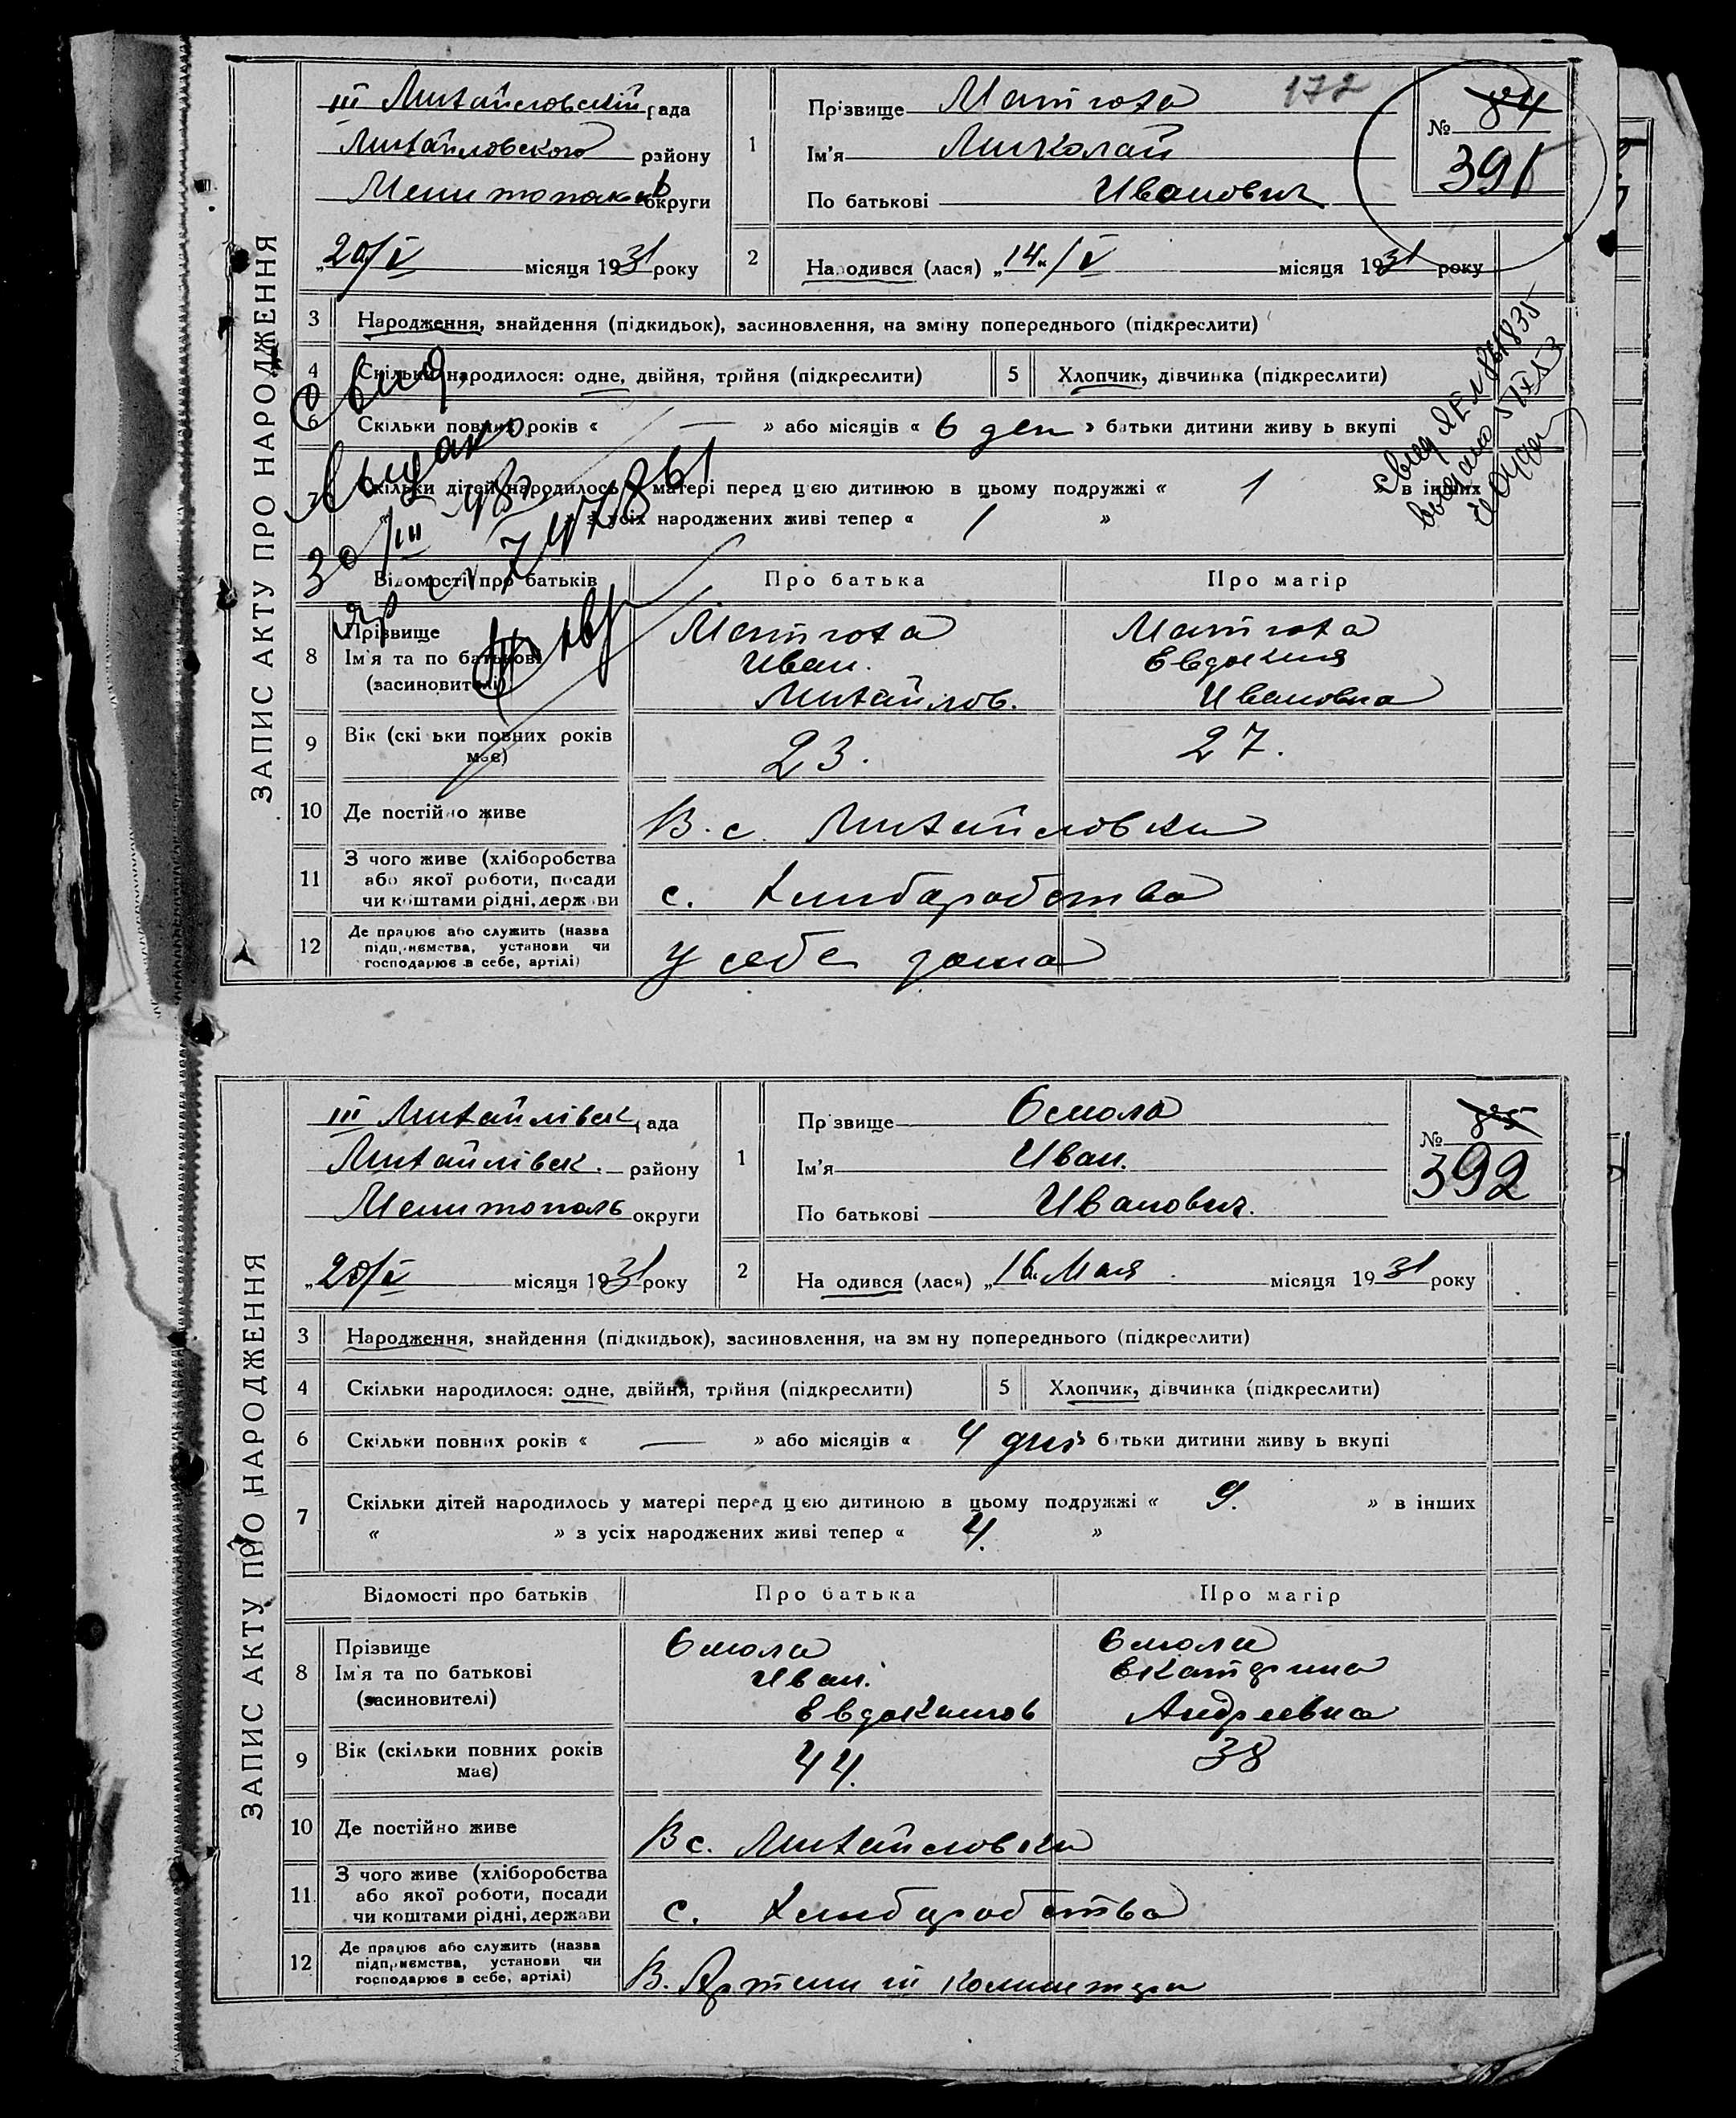 ЗАПИС АКТУ ПРО НАРОДЖЕННЯ
III Михайловский рада
Михайловского району
Мелитопольськ округи
„20/V місяця 1931 року
172
1 Прізвище Матюха
Ім'я Миколай
По батькові Иванович
№ 84
391
2 Народився (лася) „14"/V місяця 1931 року
3 Народження, знайдення (підкидьок), засиновлення, на зміну попереднього (підкреслити)
4 Скільки народилося: одне, двійня, трійня (підкреслити) 5 Хлопчик, дівчинка (підкреслити)
6 Скільки повних років « — » або місяців « 6 ден » батьки дитини живу ь вкупі
7 Скільки дітей народилось у матері перед цією дитиною в цьому подружжі « 1 » в інших
з усіх народжених живі тепер « 1 »
Свид
Выдано
30/III
свид
выдано
Відомості про батьків Про батька Про матір
8 Прізвище Матюха Матюха
Ім'я та по батькові Иван. Евдокия
(засиновителі) Михайлов. Ивановна
9 Вік (скі ьки повних років має) 23. 27.
10 Де постійно живе В. с. Михайловки
11 З чого живе (хліборобства
або якої роботи, посади
чи коштами рідні, держави с. Хлибаробства
12 Де працює або служить (назва
підприємства, установи чи
господарює в себе, артілі) у себе дома
ЗАПИС АКТУ ПРО НАРОДЖЕННЯ
III Михайлівск рада
Михайлівск. району
Мелитополь округи
„20/V місяця 1931 року
1 Прізвище Смола
Ім'я Иван.
По батькові Иванович.
№ 85
392
2 На одився (лася) „16" Мая. місяця 1931 року
3 Народження, знайдення (підкидьок), засиновлення, на зм ну попереднього (підкреслити)
4 Скільки народилося: одне, двійня, трійня (підкреслити) 5 Хлопчик, дівчинка (підкреслити)
6 Скільки повних років « — » або місяців « 4 дні » б тьки дитини живу ь вкупі
7 Скільки дітей народилось у матері перед цією дитиною в цьому подружжі « 9. » в інших
« » з усіх народжених живі тепер « 4. »
Відомості про батьків Про батька Про матір
8 Прізвище Смола Смола
Ім'я та по батькові Иван. Екатерина
(засиновителі) Евдокимов Андреевна
9 Вік (скільки повних років має) 44. 38
10 Де постійно живе В с. Михайловки
11 З чого живе (хліборобства
або якої роботи, посади
чи коштами рідні, держави с. Хлибаробства
12 Де працює або служить (назва
підприємства, установи чи
господарює в себе, артілі) В. Артели